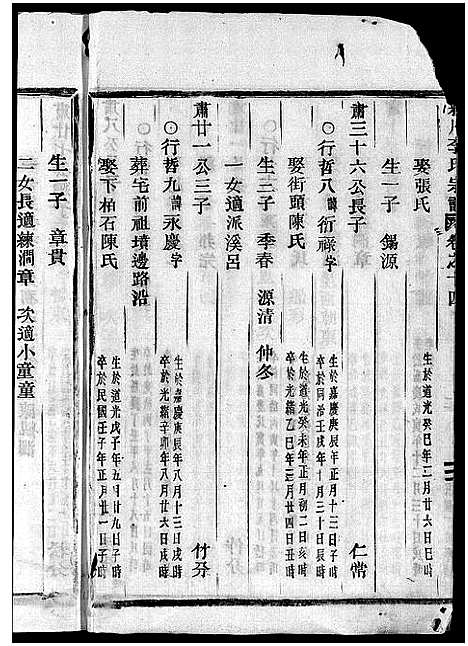 李氏宗譜 卷之十四
娶張氏 生於道光癸巳年二月廿六日巳時
生一子 錫源
肅三十六公長子
○行哲八諱衍祿字 仁常
生於嘉慶庚辰年正月十三日子時
卒於同治壬戌年十月三十日辰時
娶街頭陳氏
生於道光癸未年正月初二日亥時
卒於光緒乙巳年三月廿四日丑時
生三子 季春 源清 仲冬
一女適派溪呂
肅廿一公三子
○行哲九諱永慶字 竹芬
生於嘉慶庚辰年八月十三日戌時
卒於光緒辛卯年八月廿六日戌時
葬宅前祖墳邊路沿
娶下柏石陳氏
生於道光戊子年五月廿九日子時
卒於民國壬子年正月廿一日子時
生一子 章貴
二女長適練澗章 次適小童童